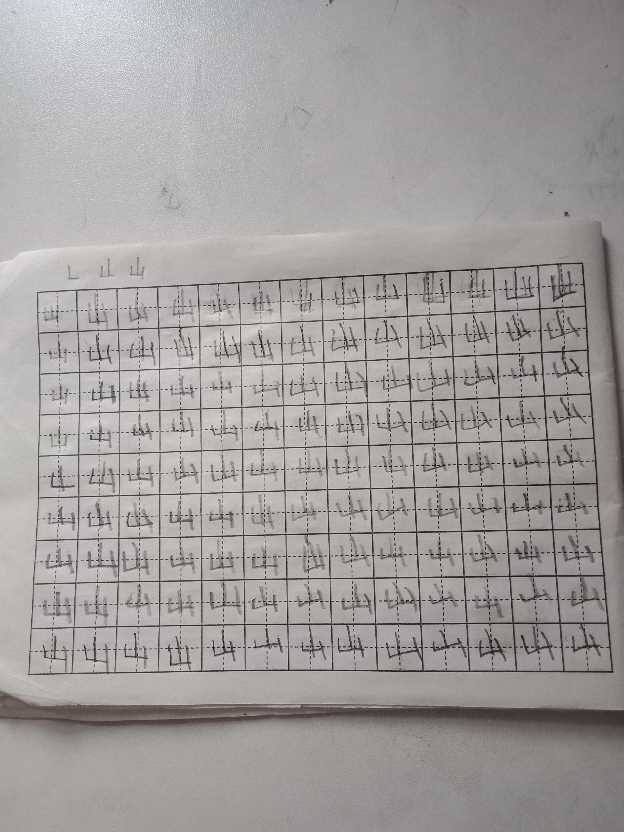 山
山山山山山山山山山山山山山
山山山山山山山山山山山山山
山山山山山山山山山山山山山
山山山山山山山山山山山山山
山山山山山山山山山山山山山
山山山山山山山山山山山山山
山山山山山山山山山山山山山
山山山山山山山山山山山山山
山山山山山山山山山山山山山